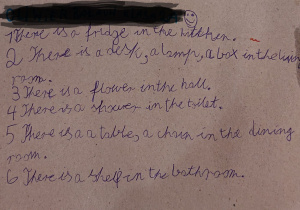 1There is a fridge in the kitchen.
2 There is a desk, a lamp, a box in the living
room.
3 There is a flower in the hall.
4 There is a shower in the toilet.
5 There is a a table, a chair in the dining
room.
6 There is a shelf in the bathroom.